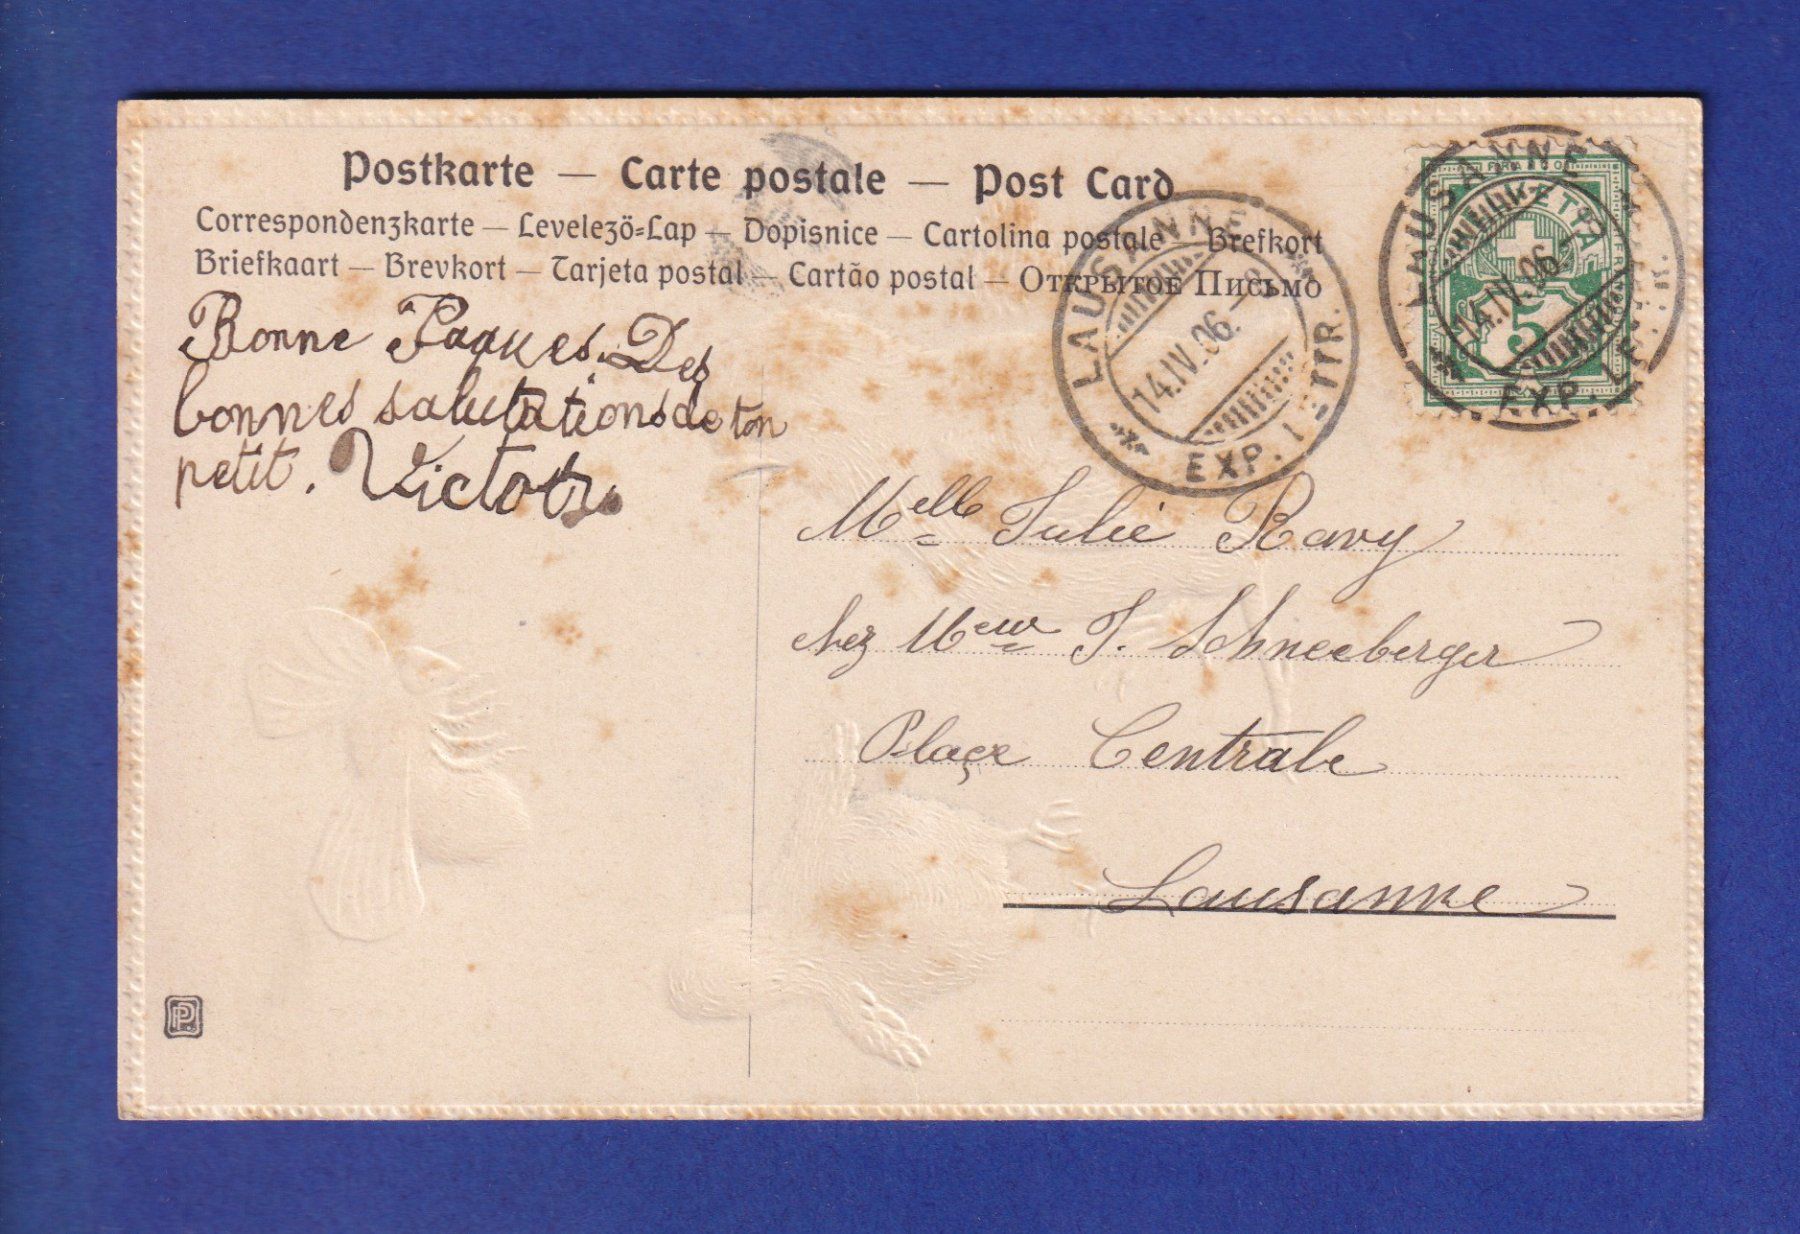 Postkarte — Carte postale — Post Card
Correspondenzkarte — Levelező-Lap — Dopisnice — Cartolina postale — Brefkort
Briefkaart — Brevkort — Tarjeta postal — Cartão postal — Открытое Письмо
Bonne Paques. Des
bonnes salutations de ton
petit. Victor.
LAUSANNE
14.IV.06.
EXP. LETTR.
LAUSANNE
14.IV.06.
EXP. LE
FRANCO
5
Melle Julie Ravy
chez Mme J. Schneeberger
Plaçe Centrale
Lausanne
PP